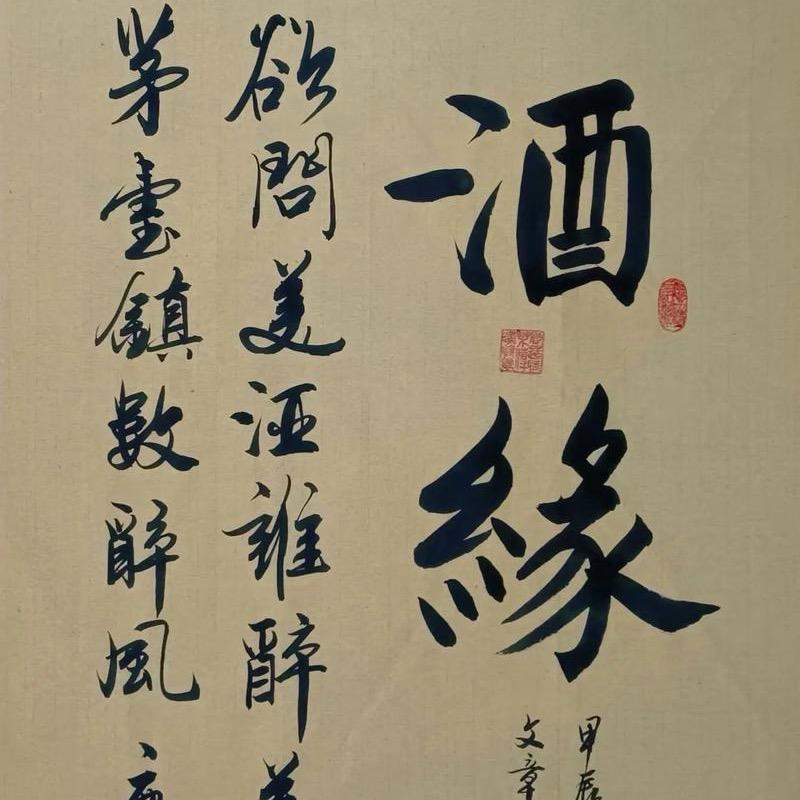 酒緣
甲辰
文章
欲問美酒誰醉
茅臺鎮數醉風